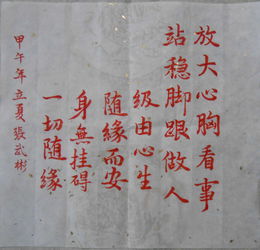 放大心胸看事
站稳脚跟做人
级由心生
随緣而安
身無挂碍
一切随緣
甲午年立夏張武彬